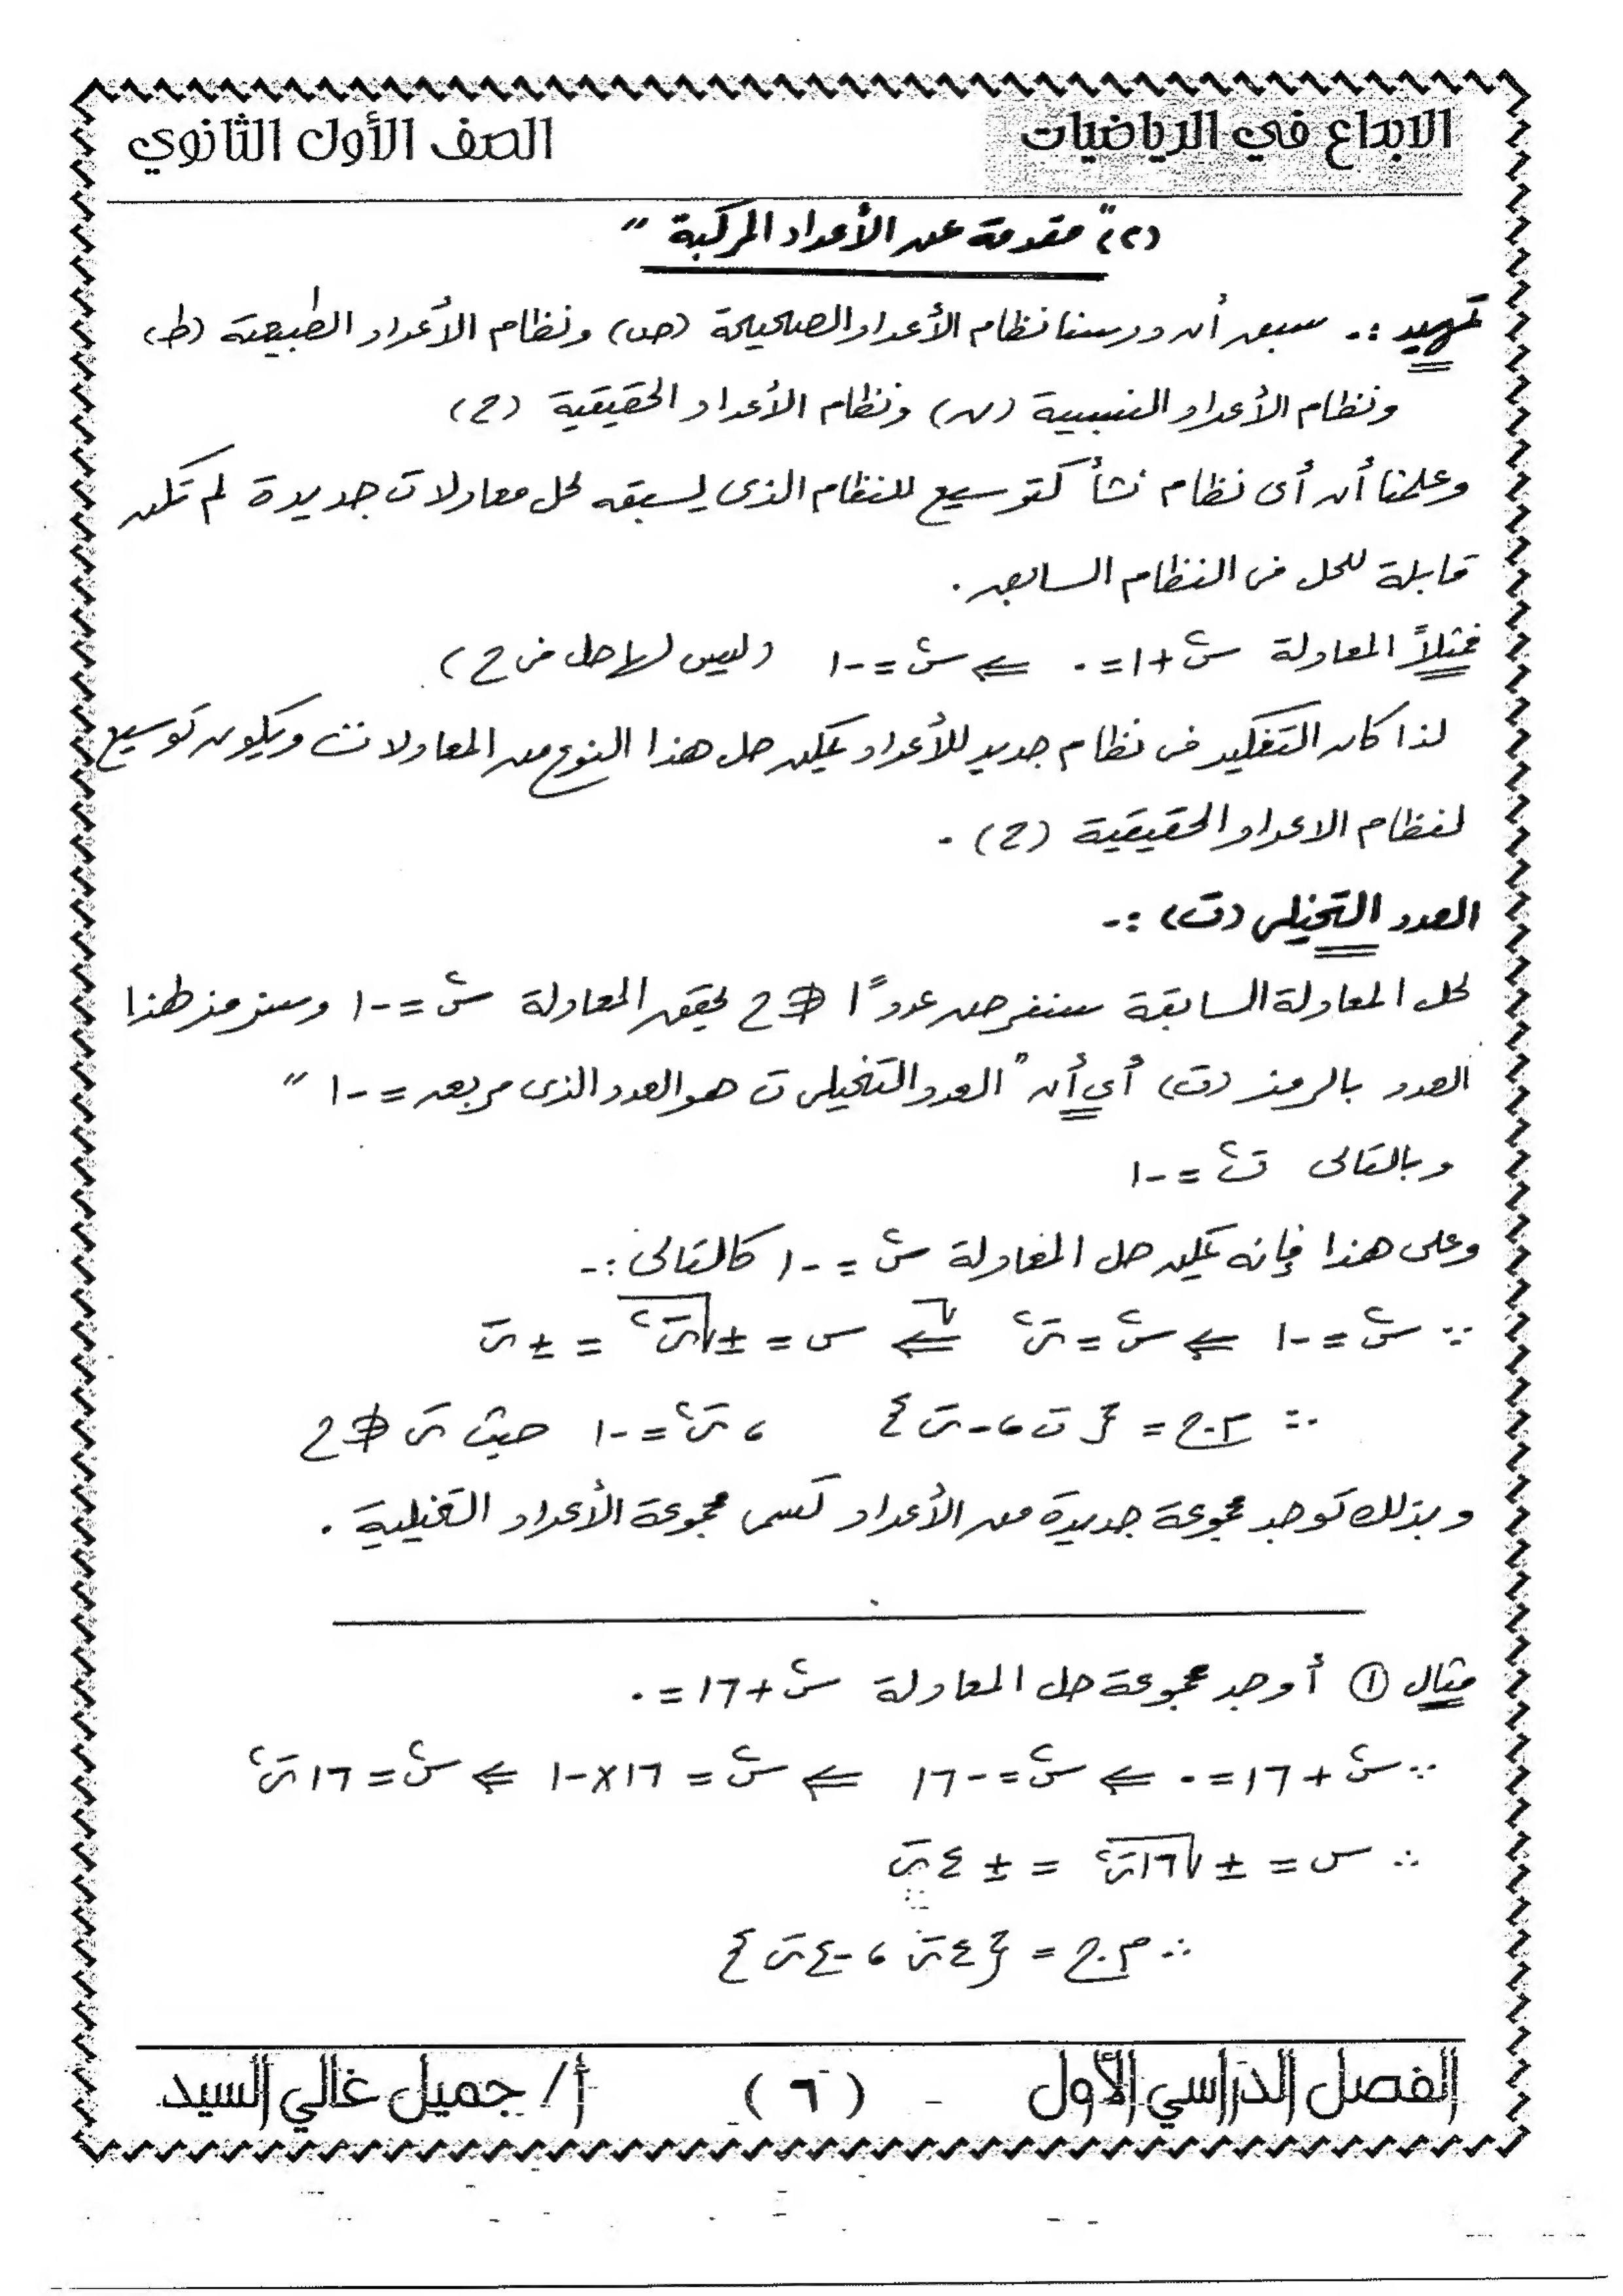 الابداع في الرياضيات
الصف الأول الثانوي
(٢) "مقدمة عن الأعداد المركبة"
تمهيد :- سبق أن درسنا نظام الأعداد الصحيحة (ص) ونظام الأعداد الطبيعية (ط)
ونظام الأعداد النسبية (ن) ونظام الأعداد الحقيقية (ح)
وعلمنا أن أى نظام نشأ كتوسيع للنظام الذى يسبقه لحل معادلات جديدة لم تكن
قابلة للحل فى النظام السابق .
فمثلاً المعادلة س٢ + ١ = ٠ ⇐ س٢ = -١ (ليس لها حل فى ح)
لذا كان التفكير فى نظام جديد للأعداد يمكن حل هذا النوع من المعادلات ويكون توسيع
لنظام الاعداد الحقيقية (ح) .
العدد التخيلى (ت) :-
لحل المعادلة السابقة سنفرض عددًا ∌ ح يحقق المعادلة س٢ = -١ وسنرمز لهذا
العدد بالرمز (ت) أي أن "العدد التخيلى ت هو العدد الذى مربعه = -١"
وبالتالى ت٢ = -١
وعلى هذا فإنه يمكن حل المعادلة س٢ = -١ كالتالى :-
∵ س٢ = -١ ⇐ س٢ = ت٢ ⇐ س = ±√ت٢ = ± ت
∴ م.ح = {ت ، -ت} ، ت٢ = -١ حيث ت ∌ ح
وبذلك توجد مجموعة جديدة من الأعداد تسمى مجموعة الأعداد التخيلية .
مثال ① أوجد مجموعة حل المعادلة س٢ + ١٦ = ٠
∵ س٢ + ١٦ = ٠ ⇐ س٢ = -١٦ ⇐ س٢ = ١٦ × -١ ⇐ س٢ = ١٦ت٢
∴ س = ±√١٦ت٢ = ± ٤ت
∴ م.ح = {٤ت ، -٤ت}
الفصل الدراسي الأول
(٦)
أ/ جميل غالي السيد